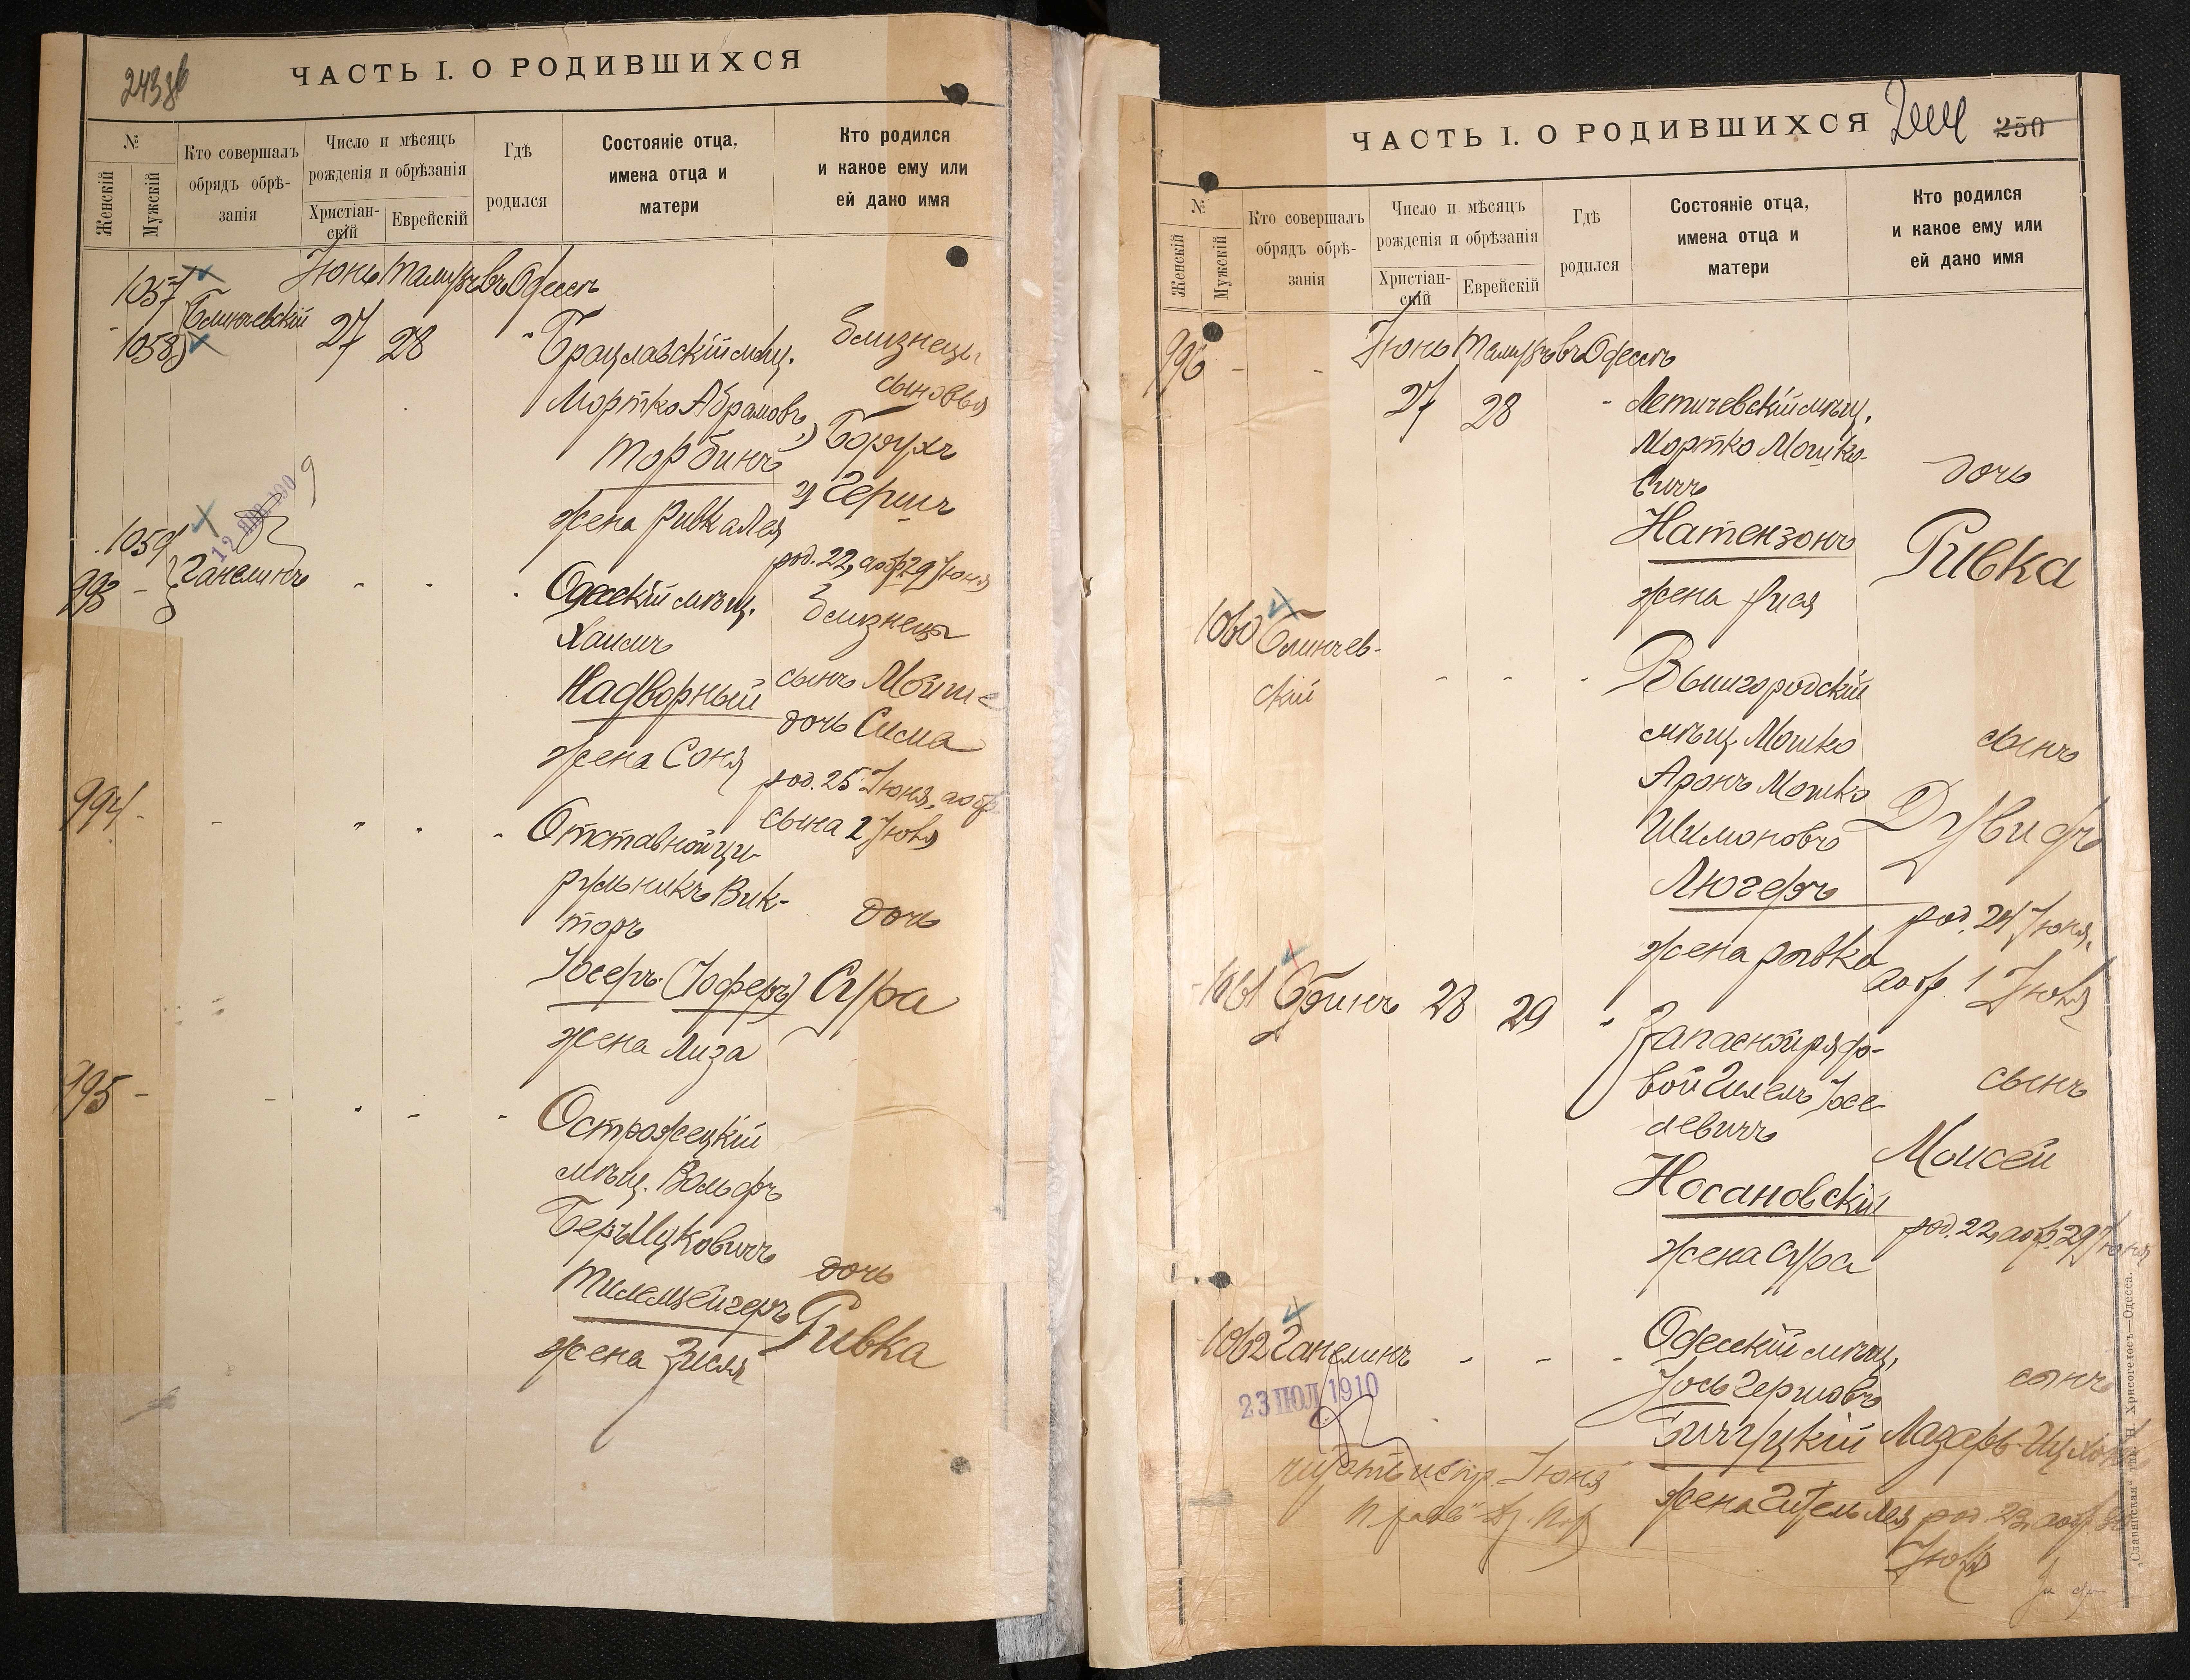 243 об
ЧАСТЬ I. О РОДИВШИХСЯ
№
Женскій
Мужскій
Кто совершалъ
обрядъ обрѣ-
занія
Число и мѣсяцъ
рожденія и обрѣзанія
Христіан-
скій
Еврейскій
Гдѣ
родился
Состояніе отца,
имена отца и
матери
Кто родился
и какое ему или
ей дано имя
1057
1058
Блинчевскій
Іюнь Тамузъ въ Одессѣ
27 28
Брацлавскій мѣщ.
Мортко Абрамовъ
Торбинъ
жена Ривка Лея
Близнецы
сыновья
1) Борухъ
2) Герш
род. 22, а обр. 29 Іюня
1059
993 -
Ганелинъ
Одесскій мѣщ.
Хаимъ
Надворный
жена Соня
Близнецы
сынъ Мойше
дочь Сима
род. 25 Іюня, а обр.
сына 2 Іюля
994 -
Отставной ци-
рульникъ Вик-
торъ
Іосеръ (Іоферъ)
жена Лиза
дочь
Сура
995 -
Острожецкій
мѣщ. Вольфъ
Беръ Ицковичъ
жена Зисля
дочь
Ривка
ЧАСТЬ I. О РОДИВШИХСЯ
250
№
Женскій
Мужскій
Кто совершалъ
обрядъ обрѣ-
занія
Число и мѣсяцъ
рожденія и обрѣзанія
Христіан-
скій
Еврейскій
Гдѣ
родился
Состояніе отца,
имена отца и
матери
Кто родился
и какое ему или
ей дано имя
996 -
Іюнь Тамузъ въ Одессѣ
27 28
Летичевскій мѣщ.
Мортко Мошко-
вичъ
Натензонъ
жена Рися
дочь
Ривка
1060
Блинчев-
скій
Вышгородскій
мѣщ. Мошко
Аронъ Мошко
Шимоновъ
Люгеръ
жена Ривка
сынъ
Дувидъ
род. 24 Іюня,
а обр. 1 Іюля
1061
28 29
Запасной рядо-
вой Гилель Іосе-
левичъ
Носановскій
жена Сура
сынъ
Моисей
род. 22, а обр. 29 Іюня
1062 Ганелинъ
23 ІЮЛ 1910
Одесскій мѣщ.
Іось Гершовъ
жена Гитель Лея
сынъ
Лазарь Ицхокъ
род. 23, а обр. 30
Іюня
„Славянская“ тип. Н. Хрисогелосъ—Одесса.